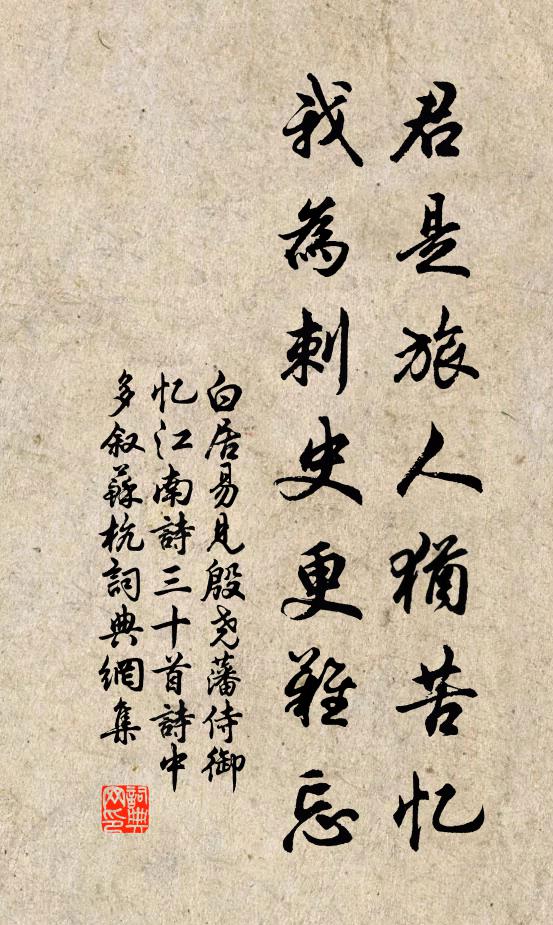 君是旅人猶苦忆
我為刺史更難忘
白居易見殷尧藩侍御
忆江南詩三十首詩中
多叙蘇杭詞典網集
詞典
网印